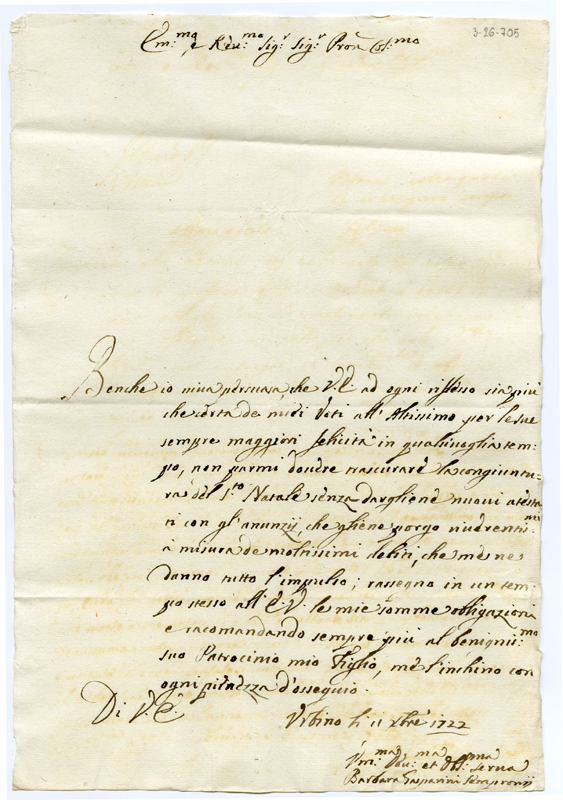 3-26-705
Em:mo e Rev:mo Sigr Sigr Pron Col:mo
Benche io viva persuasa, che V.E. ad ogni riflesso sia più
che certa de miei Voti all'Altissimo per le sue
sempre maggiori felicità in qualsivoglia tem-
po, non parmi dover trascurare la congiuntu-
ra del S.to Natale senza dargliene nuovi atesta
ti con gl'anunzij, che gliene porgo riverentis:mi
à misura de moltissimi debiti, che me ne
danno tutto l'impulso; rassegno in un tem-
po stesso all'E.V. le mie somme obligazioni
e racomandando sempre più al benigniss:mo
suo Patrocinio mio Figlio, me l'inchino con
ogni pienezza d'ossequio.
Di V.E.
Urbino li 11 Xbre 1722
Um:ma Dev:ma et Obl:ma Serva
Barbara Gasparini Sempronij